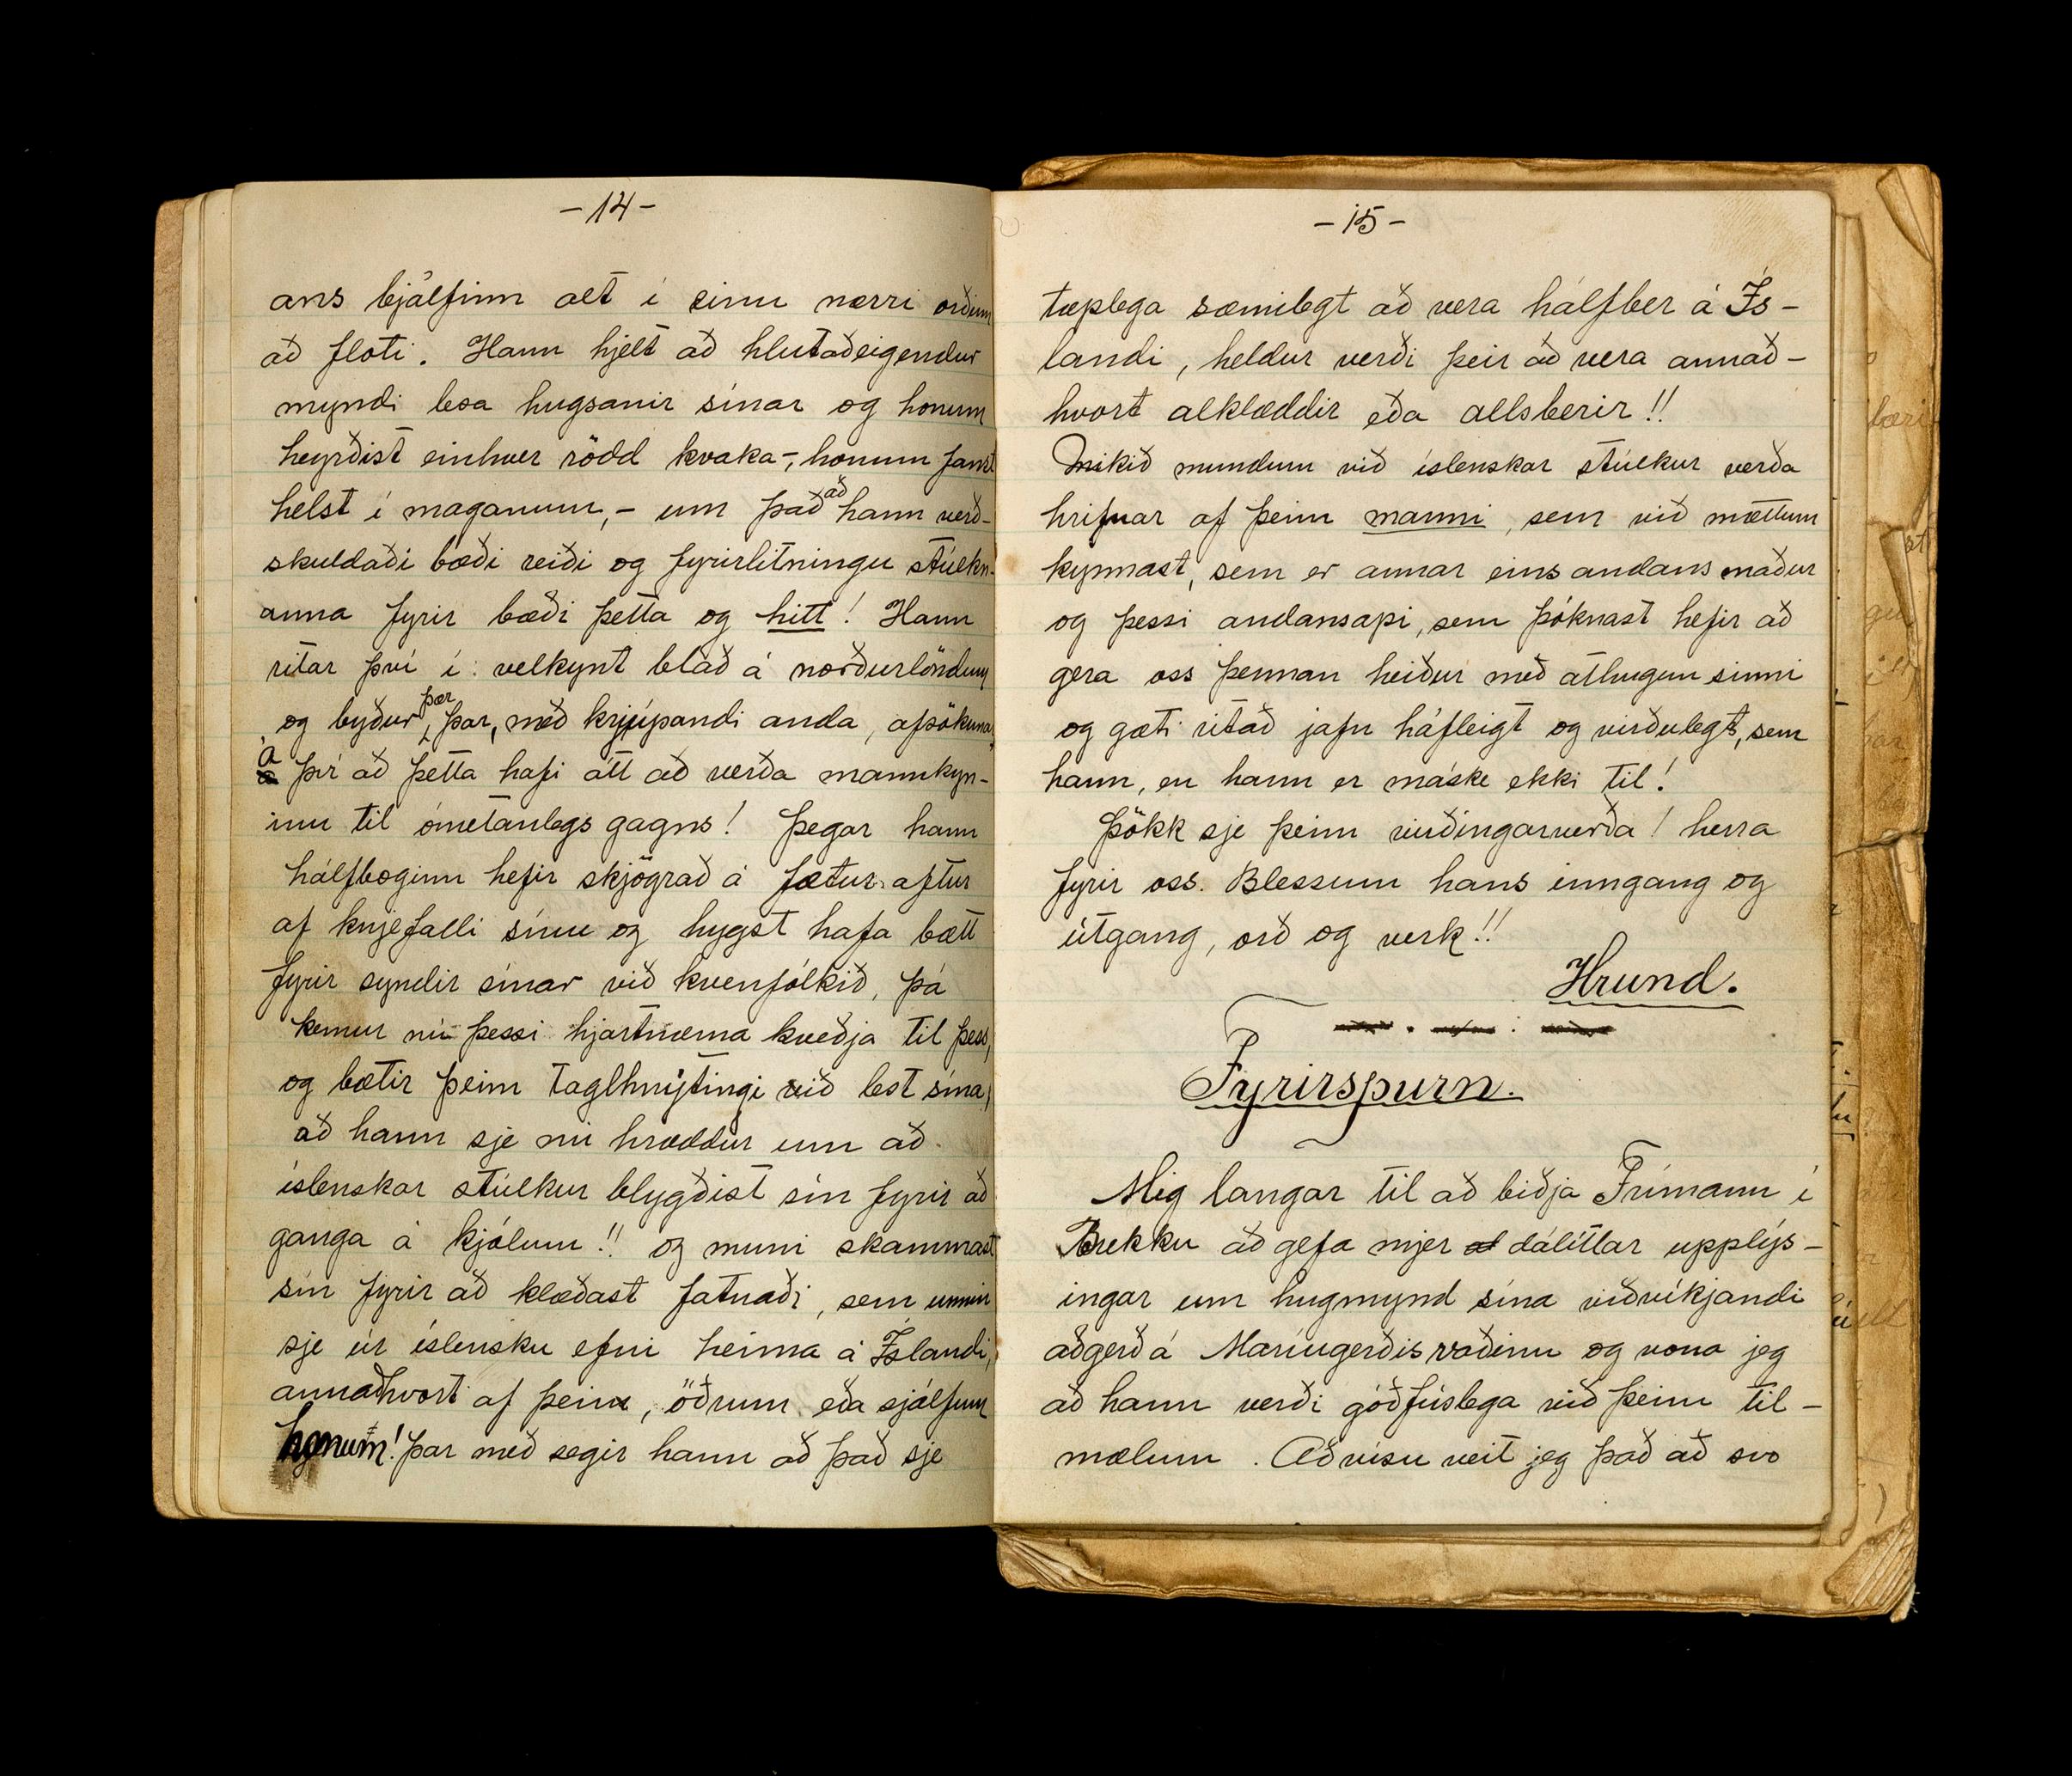 -14-
ans bjálfinn alt í einu nærri orðinn
að floti. Hann hjelt að hlutaðeigendur
myndi lesa hugsanir sínar og honum
heyrðist einhver rödd kvaka-, honum fanst
helst í maganum,- um það að hann verð-
skuldaði bæði reiði og fyrirlitningu stúlkn-
anna fyrir bæði þetta og hitt! Hann
ritar því í velkynt blað á norðurlöndum
og byður þær þar, með krjúpandi anda, afsökunar
á því að þetta hafi átt að verða mannkyn-
inu til ómetanlegs gagns! Þegar hann
hálfboginn hefir skjögrað á fætur aftur
af knjefalli sínu og hygst hafa bætt
fyrir syndir sínar við kvenfólkið, þá
kemur nú þessi hjartnæma kveðja til þess,
og bætir þeim taglhnýtingi við lest sína,
að hann sje nú hræddur um að
íslenskar stúlkur blygðist sín fyrir að
ganga á kjólum!! og muni skammast
sín fyrir að klæðast fatnaði, sem unnin
sje úr íslensku efni heima á Íslandi,
annaðhvort af þeim, öðrum eða sjálfum
honum! Þar með segir hann að það sje
-15-
tæplega sæmilegt að vera hálfber á Ís-
landi, heldur verði þeir að vera annað-
hvort alklæddir eða allsberir!!
Mikið mundum við íslenskar stúlkur verða
hrifnar af þeim manni, sem við mættum
kynnast, sem er annar eins andans maður
og þessi andansapi, sem þóknast hefir að
gera oss þennan heiður með athugun sinni
og gæti ritað jafn háfleigt og virðulegt, sem
hann, en hann er máske ekki til!
Þökk sje þeim virðingarverða! herra
fyrir oss. Blessum hans inngang og
útgang, orð og verk!!
Hrund.
Fyrirspurn.
Mig langar til að biðja Frímann í
Brekku að gefa mjer dálítlar upplýs-
ingar um hugmynd sína viðvíkjandi
aðgerð á Maríugerðisvaðinu og vona jeg
að hann verði góðfúslega við þeim til-
mælum. Að vísu veit jeg það að svo